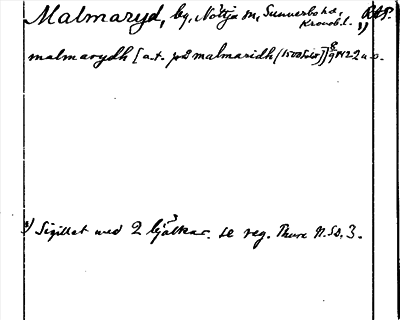 Malmaryd, by, Nöttja sn, Sunnerbo hd,
Kronob. l.
malmarydh [a.t. på malmaridh (1500talet)] 1422 u.o.
1) Sigillet med 2 bjälkar. se reg. Thure N. Sd. 3.